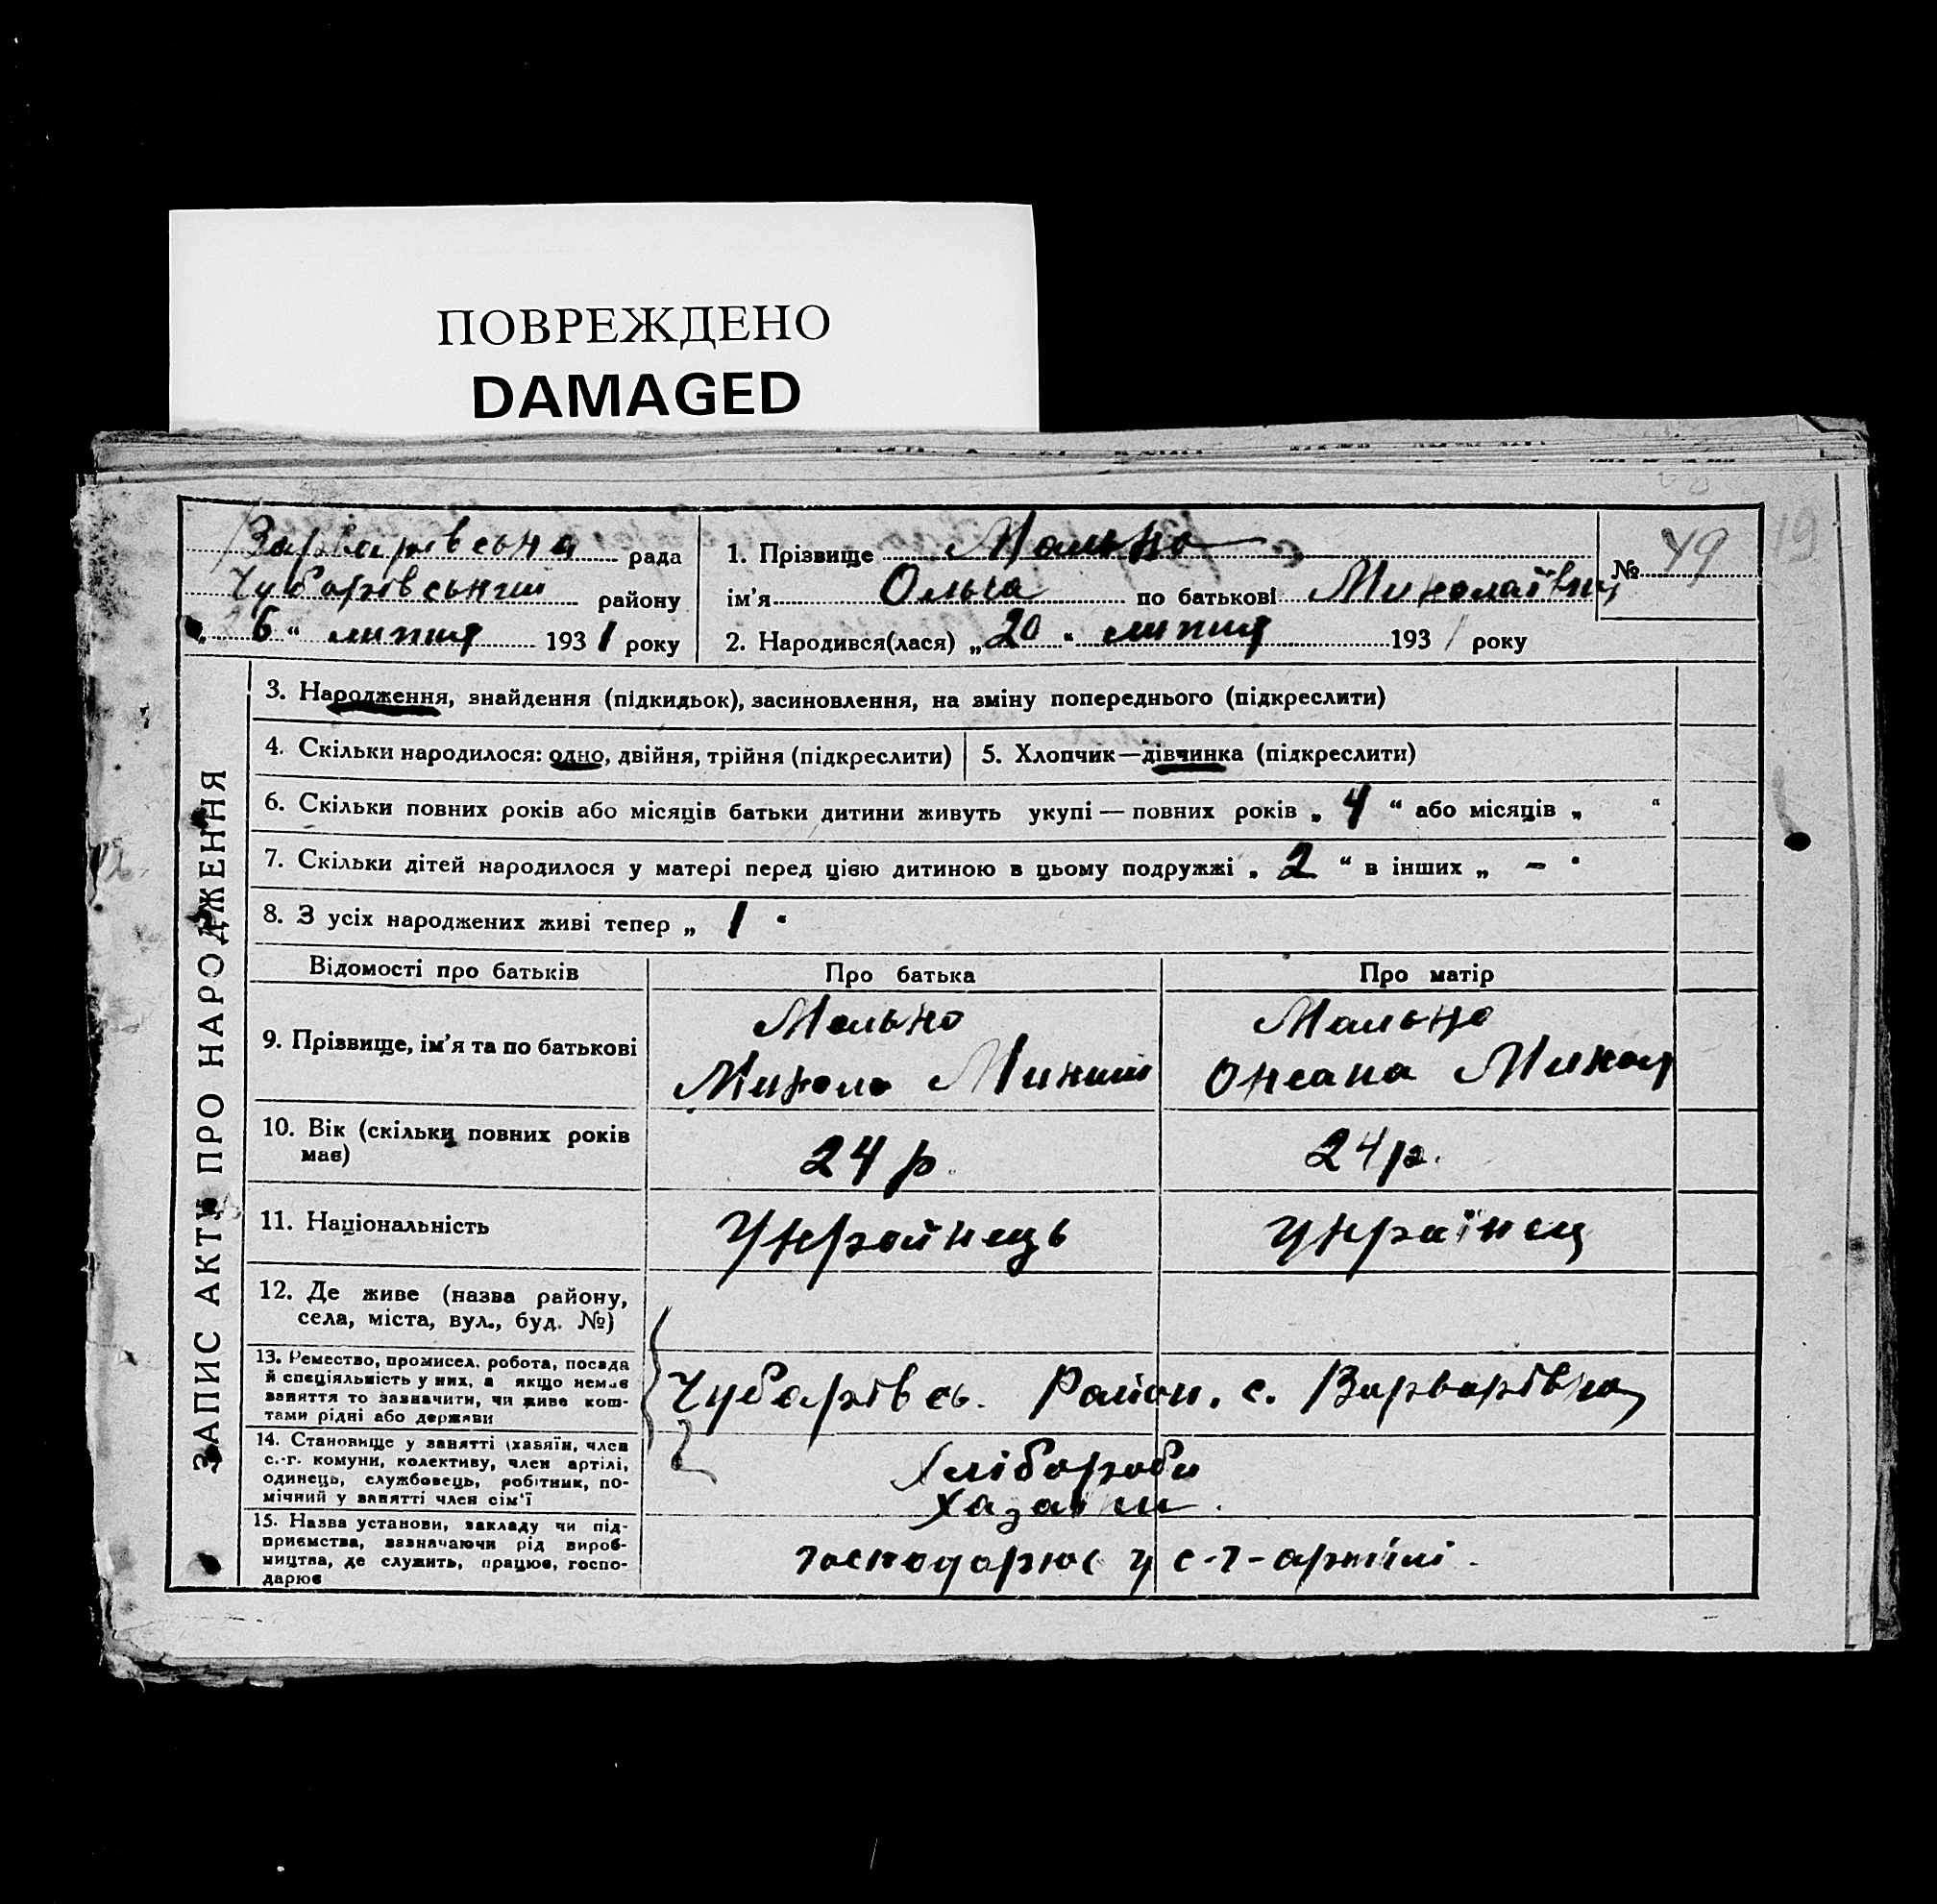 ПОВРЕЖДЕНО
DAMAGED
Варварівська рада
Чубарівський району
„ 6 “ липня 1931 року
1. Прізвище Малько
ім'я Ольга по батькові Миколаївна
№ 49
19
2. Народився(лася) „20“ липня 1931 року
ЗАПИС АКТУ ПРО НАРОДЖЕННЯ
3. Народження, знайдення (підкидьок), засиновлення, на зміну попереднього (підкреслити)
4. Скільки народилося: одно, двійня, трійня (підкреслити)
5. Хлопчик—дівчинка (підкреслити)
6. Скільки повних років або місяців батьки дитини живуть укупі — повних років „ 4 “ або місяців „ “
7. Скільки дітей народилося у матері перед цією дитиною в цьому подружжі „ 2 “ в інших „ – “
8. З усіх народжених живі тепер „ 1 “
Відомості про батьків Про батька Про матір
9. Прізвище, ім'я та по батькові
Малько
Микола
Малько
Оксана
10. Вік (скільки повних років
має)
24 р.
24 р.
11. Національність
Украйнець
українец
12. Де живе (назва району,
села, міста, вул., буд. №)
13. Ремество, промисел, робота, посада
й спеціяльність у них, а якщо немає
заняття то зазначити, чи живе кош-
тами рідні або держави
Чубарівсь. Район. с. Варварівка
14. Становище у занятті (хазяїн, член
с.-г. комуни, колективу, член артілі,
одинець, службовець, робітник, по-
мічний у занятті член сім'ї
Хлібороби
хазаїни.
15. Назва установи, закладу чи під-
приємства, зазначаючи рід вироб-
ництва, де служить, працює, госпо-
дарює
господарює у с-г-артілі.